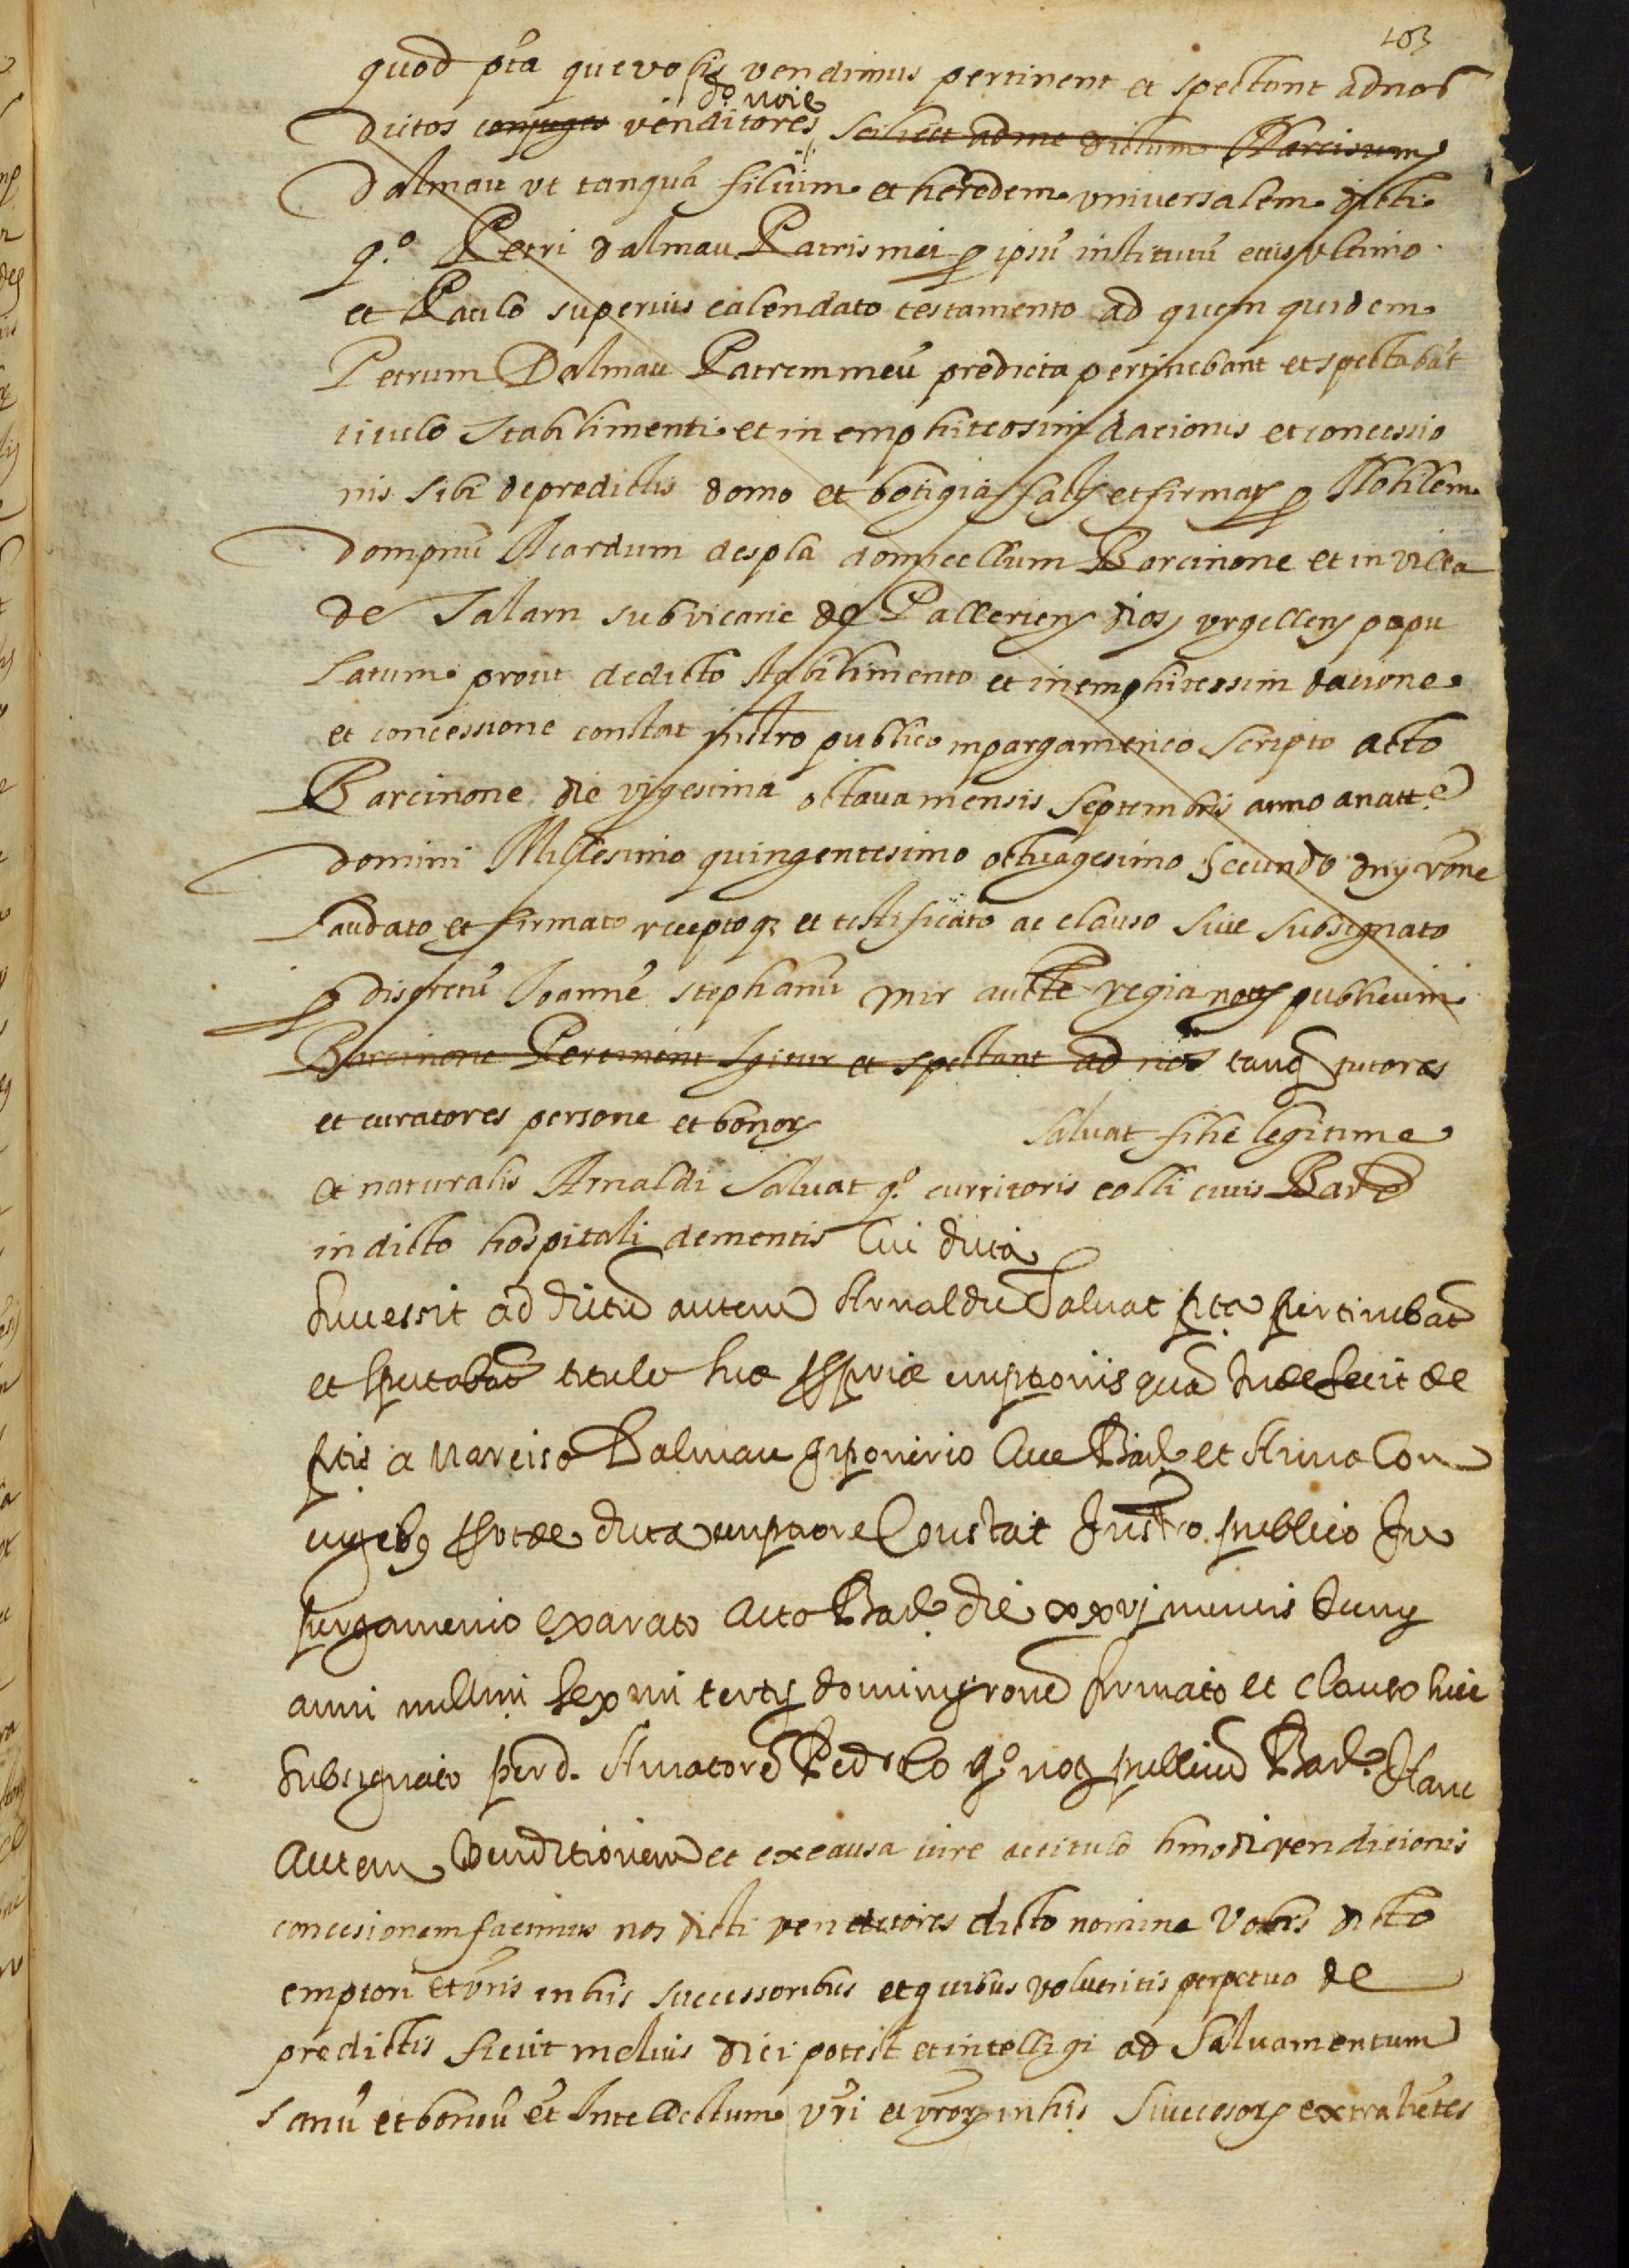 103
quod pͭa que vobis vendimus pertinent et spectant ad nos
do. noie
dictos conjuges venditores scilicet ad me dictum Narcisum
Dalmau ut tanquã filium et heredem universalem dicti
qº. Petri Dalmau Patris mei p ipsũ institutũ eius ultimo
et Paulo superius calendato testamento ad quem quidem
Petrum Dalmau Patrem meũ predicta pertinebant et spectabãt
titulo stabilimenti et in emphiteosim dacionis et concessio
nis sibi de predictis domo et botigia factis et firmatis p Nobilem
dompnũ Acardum despla domicellum Barcinone et in villa
de Talarn subvicarie de Palleriens dios urgellens popu
latum prout de dicto stabilimento et in emphiteosim dacione
et concessione constat instro publico in pargameneo scripto acto
Barcinone die vigesima octava mensis Septembris anno a natte
domini Millesimo quingentesimo octuagesimo secundo dnij rone
laudato et firmato receptoq et testificato ac clauso sive subsignato
p discretũ Joannẽ stephanũ mir aucte regia notm publicum
Barcinone Pertinent Igitur et spectant ad nos tanq tutores
et curatores persone et bonor
salvat filie legitime
et naturalis Arnaldi Salvat qº. curritoris colli civis Barc
in dicto hospitali dementis Cui dicta
successit ad dictũ autem Arnaldũ Salvat pta pertinebat
et spectabat titulo sue pprie emptionis quã inde fecit de
ptis a Narciso Dalmau Giponerio Cive Barc et Anna Con
iugibꝰ prot de dicta emptione Constat Instro. publico In
pergameneo exarato acto Barc. die xxvj mensis Juny
anni millmi sexmi terty dominij rone firmato et clauso sive
subsignato per d. Amatorẽ Pedrolo qº notm publicũ Barc. Hanc
autem Venditionem et ex causa iure ac titulo hmodi vendicionis
concesionem facimus nos dicti venditores dicto nomine Vobis dicto
emptori et vris in his successoribus et quibus volueritis perpetuo de
predictis sicut melius dici potest et intelligi ad salvamentum
sanũ et bonũ et Intellectum vri et vror in his Successor extrahẽtes